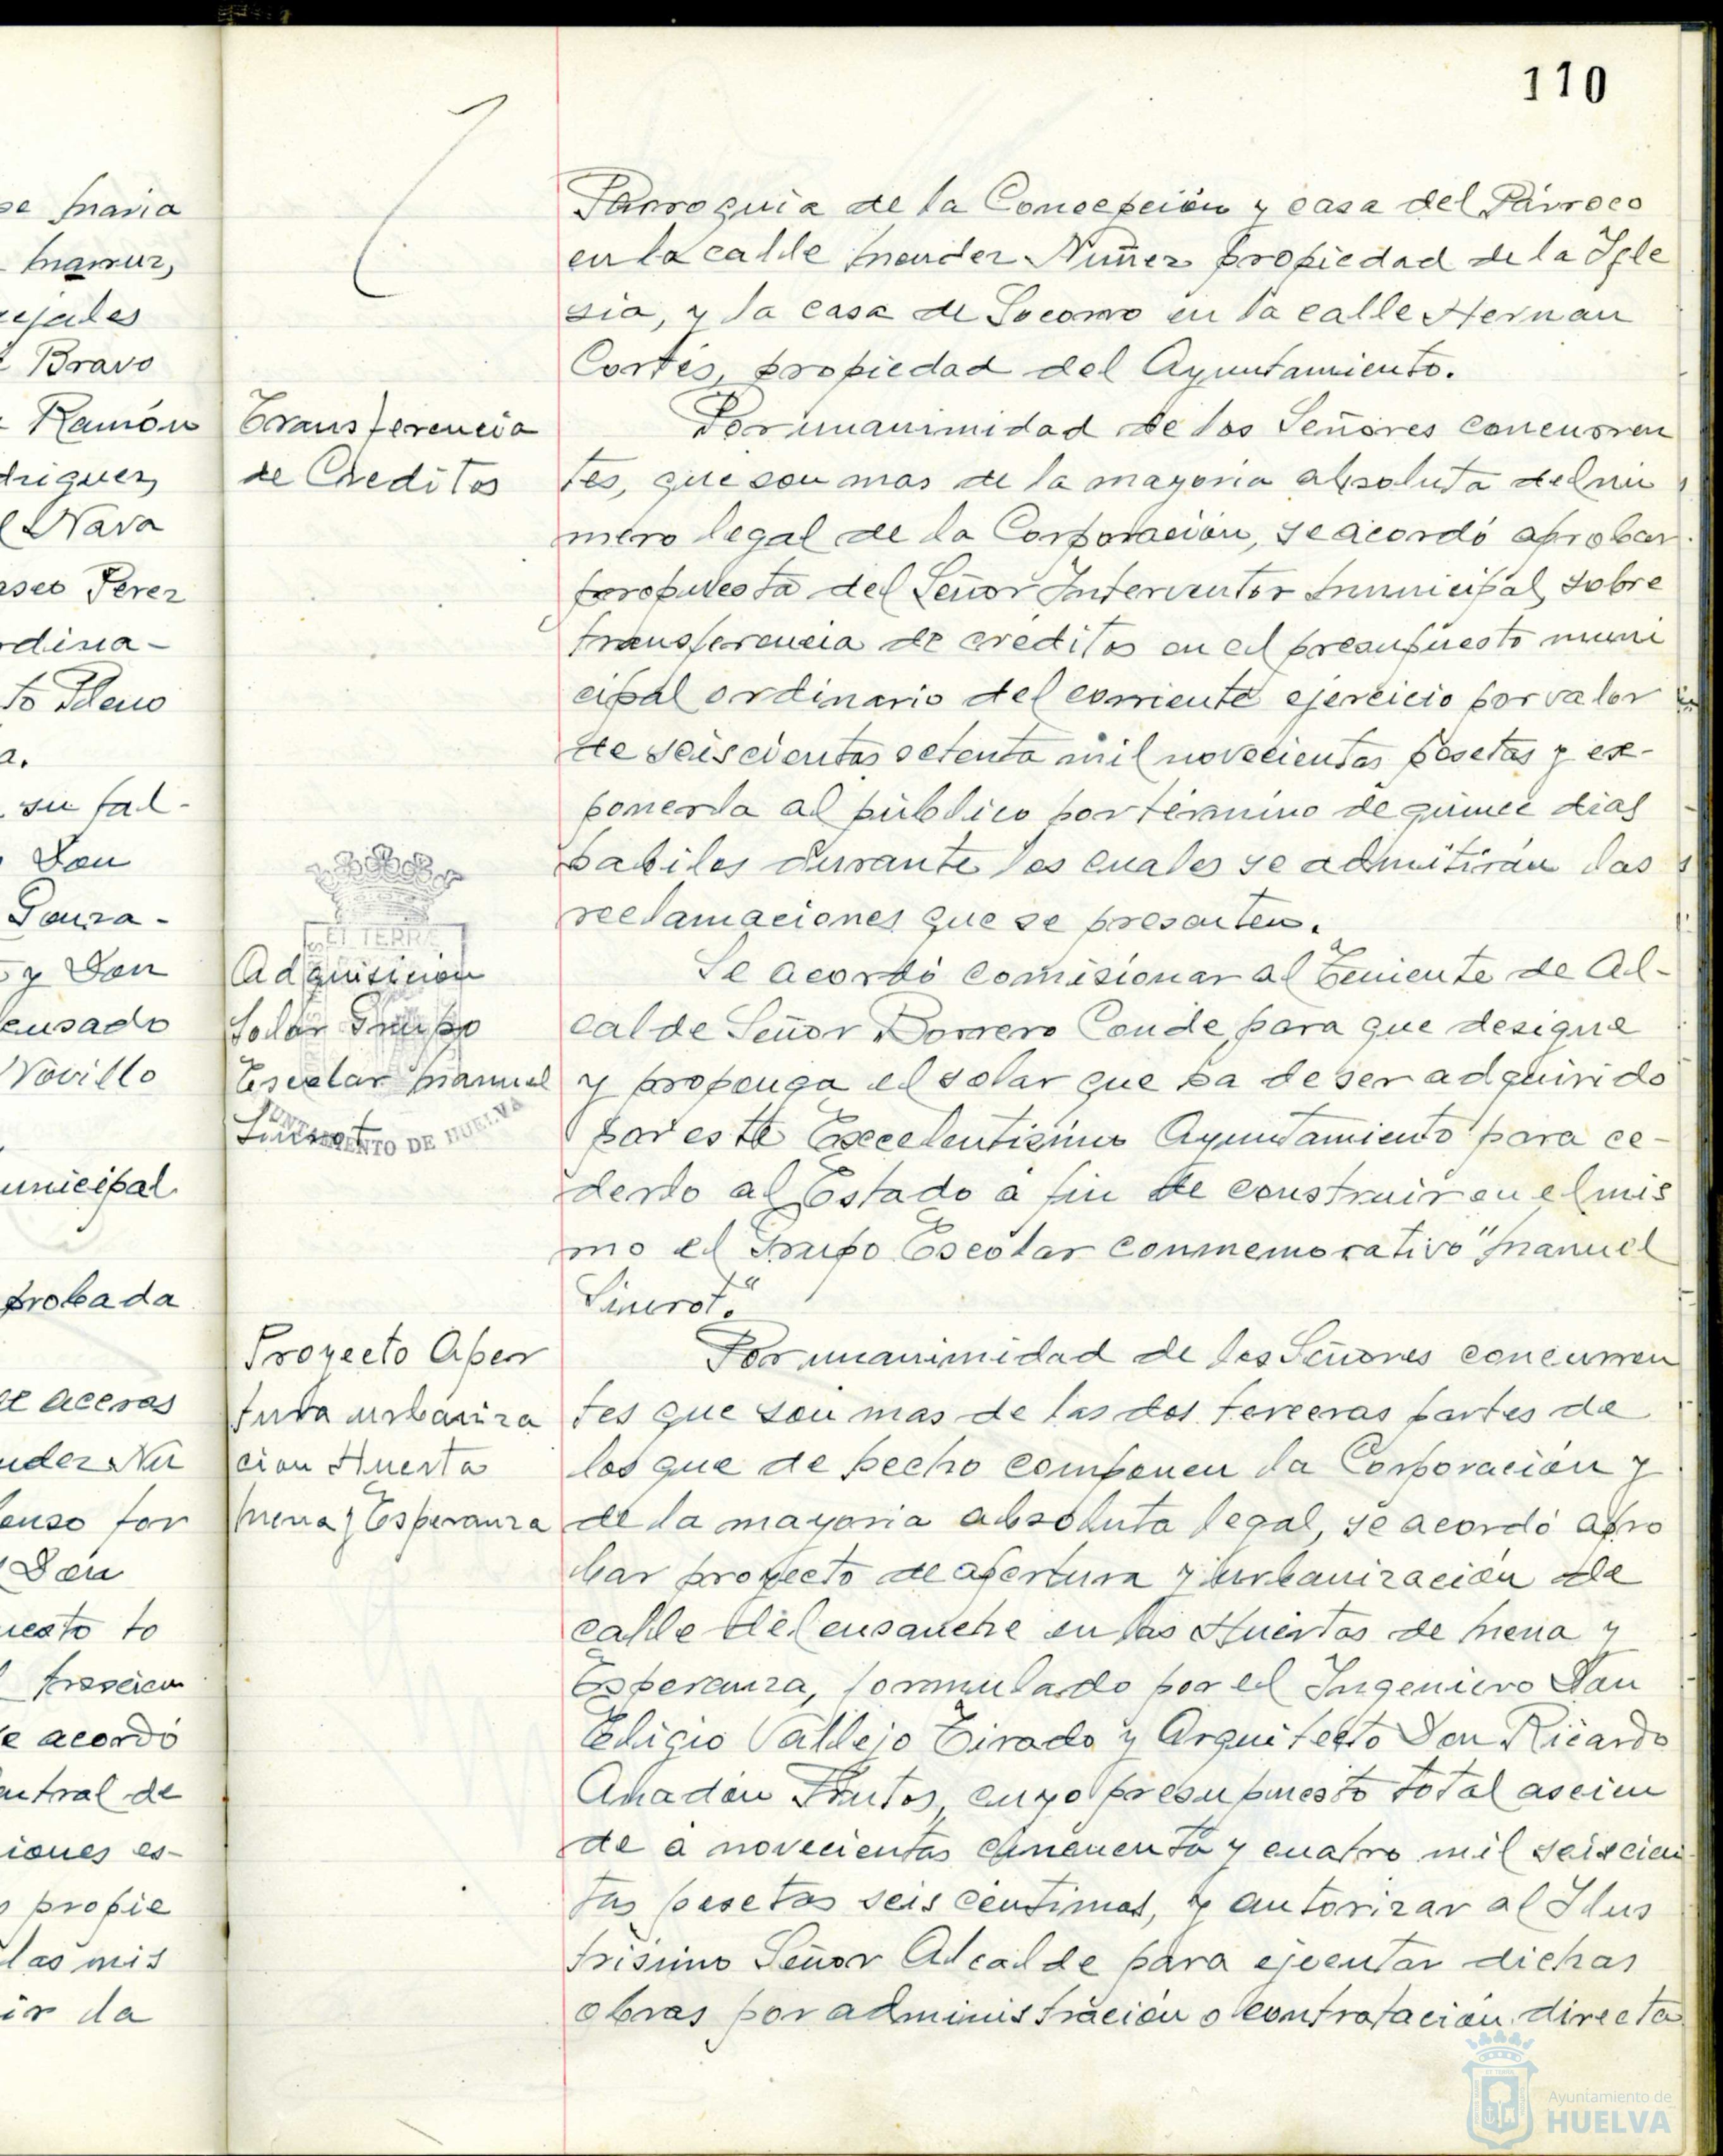 110
se Maria
Marruz,
cejales
Bravo
Ramón
driguez,
Nava
asco Perez
rdina-
to Pleno
a.
su fal-
Don
Gonza-
y Don
ensado
Novillo
unicipal
probada
de aceras
ndez Nu
onso for
Don
uesto to
fraccion
e acordó
entral de
iones es-
propie
las mis
ir la
Parroquia de la Concepción y casa del Párroco
en la calle Mendez Nuñez propiedad de la Igle
sia, y la casa de Socorro en la calle Hernan
Cortés, propiedad del Ayuntamiento.
Transferencia
de Creditos
Por unanimidad de los Señores concurren
tes, que son mas de la mayoria absoluta del nú
mero legal de la Corporación, se acordó aprobar
propuesta del Señor Interventor Municipal, sobre
transferencia de créditos en el presupuesto muni
cipal ordinario del corriente ejercicio por valor
de seiscientas setenta mil novecientas pesetas y ex-
ponerla al público por término de quince dias
habiles durante los cuales se admitirán las
reclamaciones que se presenten.
ET TERRÆ
AYUNTAMIENTO DE HUELVA
Adquisicion
Solar Grupo
Escolar Manuel
Siurot
Se acordó comisionar al Teniente de Al-
calde Señor Borrero Conde, para que designe
y proponga el solar que ha de ser adquirido
por este Excelentisimo Ayuntamiento para ce-
derlo al Estado a fin de construir en el mis
mo el Grupo Escolar conmemorativo "Manuel
Siurot".
Proyecto Aper
tura urbaniza
cion Huerta
Mena y Esperanza
Por unanimidad de los Señores concurren
tes que son mas de las dos terceras partes de
los que de hecho componen la Corporación y
de la mayoria absoluta legal, se acordó apro
bar proyecto de apertura y urbanización de
calle del ensanche en las Huertas de Mena y
Esperanza, formulado por el Ingeniero Don
Eligio Vallejo Tirado y Arquitecto Don Ricardo
Anadón Frutos, cuyo presupuesto total ascien
de a novecientas cincuenta y cuatro mil seiscien
tas pesetas seis céntimos, y autorizar al Ilus
trisimo Señor Alcalde para ejecutar dichas
obras por administración o contratación directa
Ayuntamiento de
HUELVA